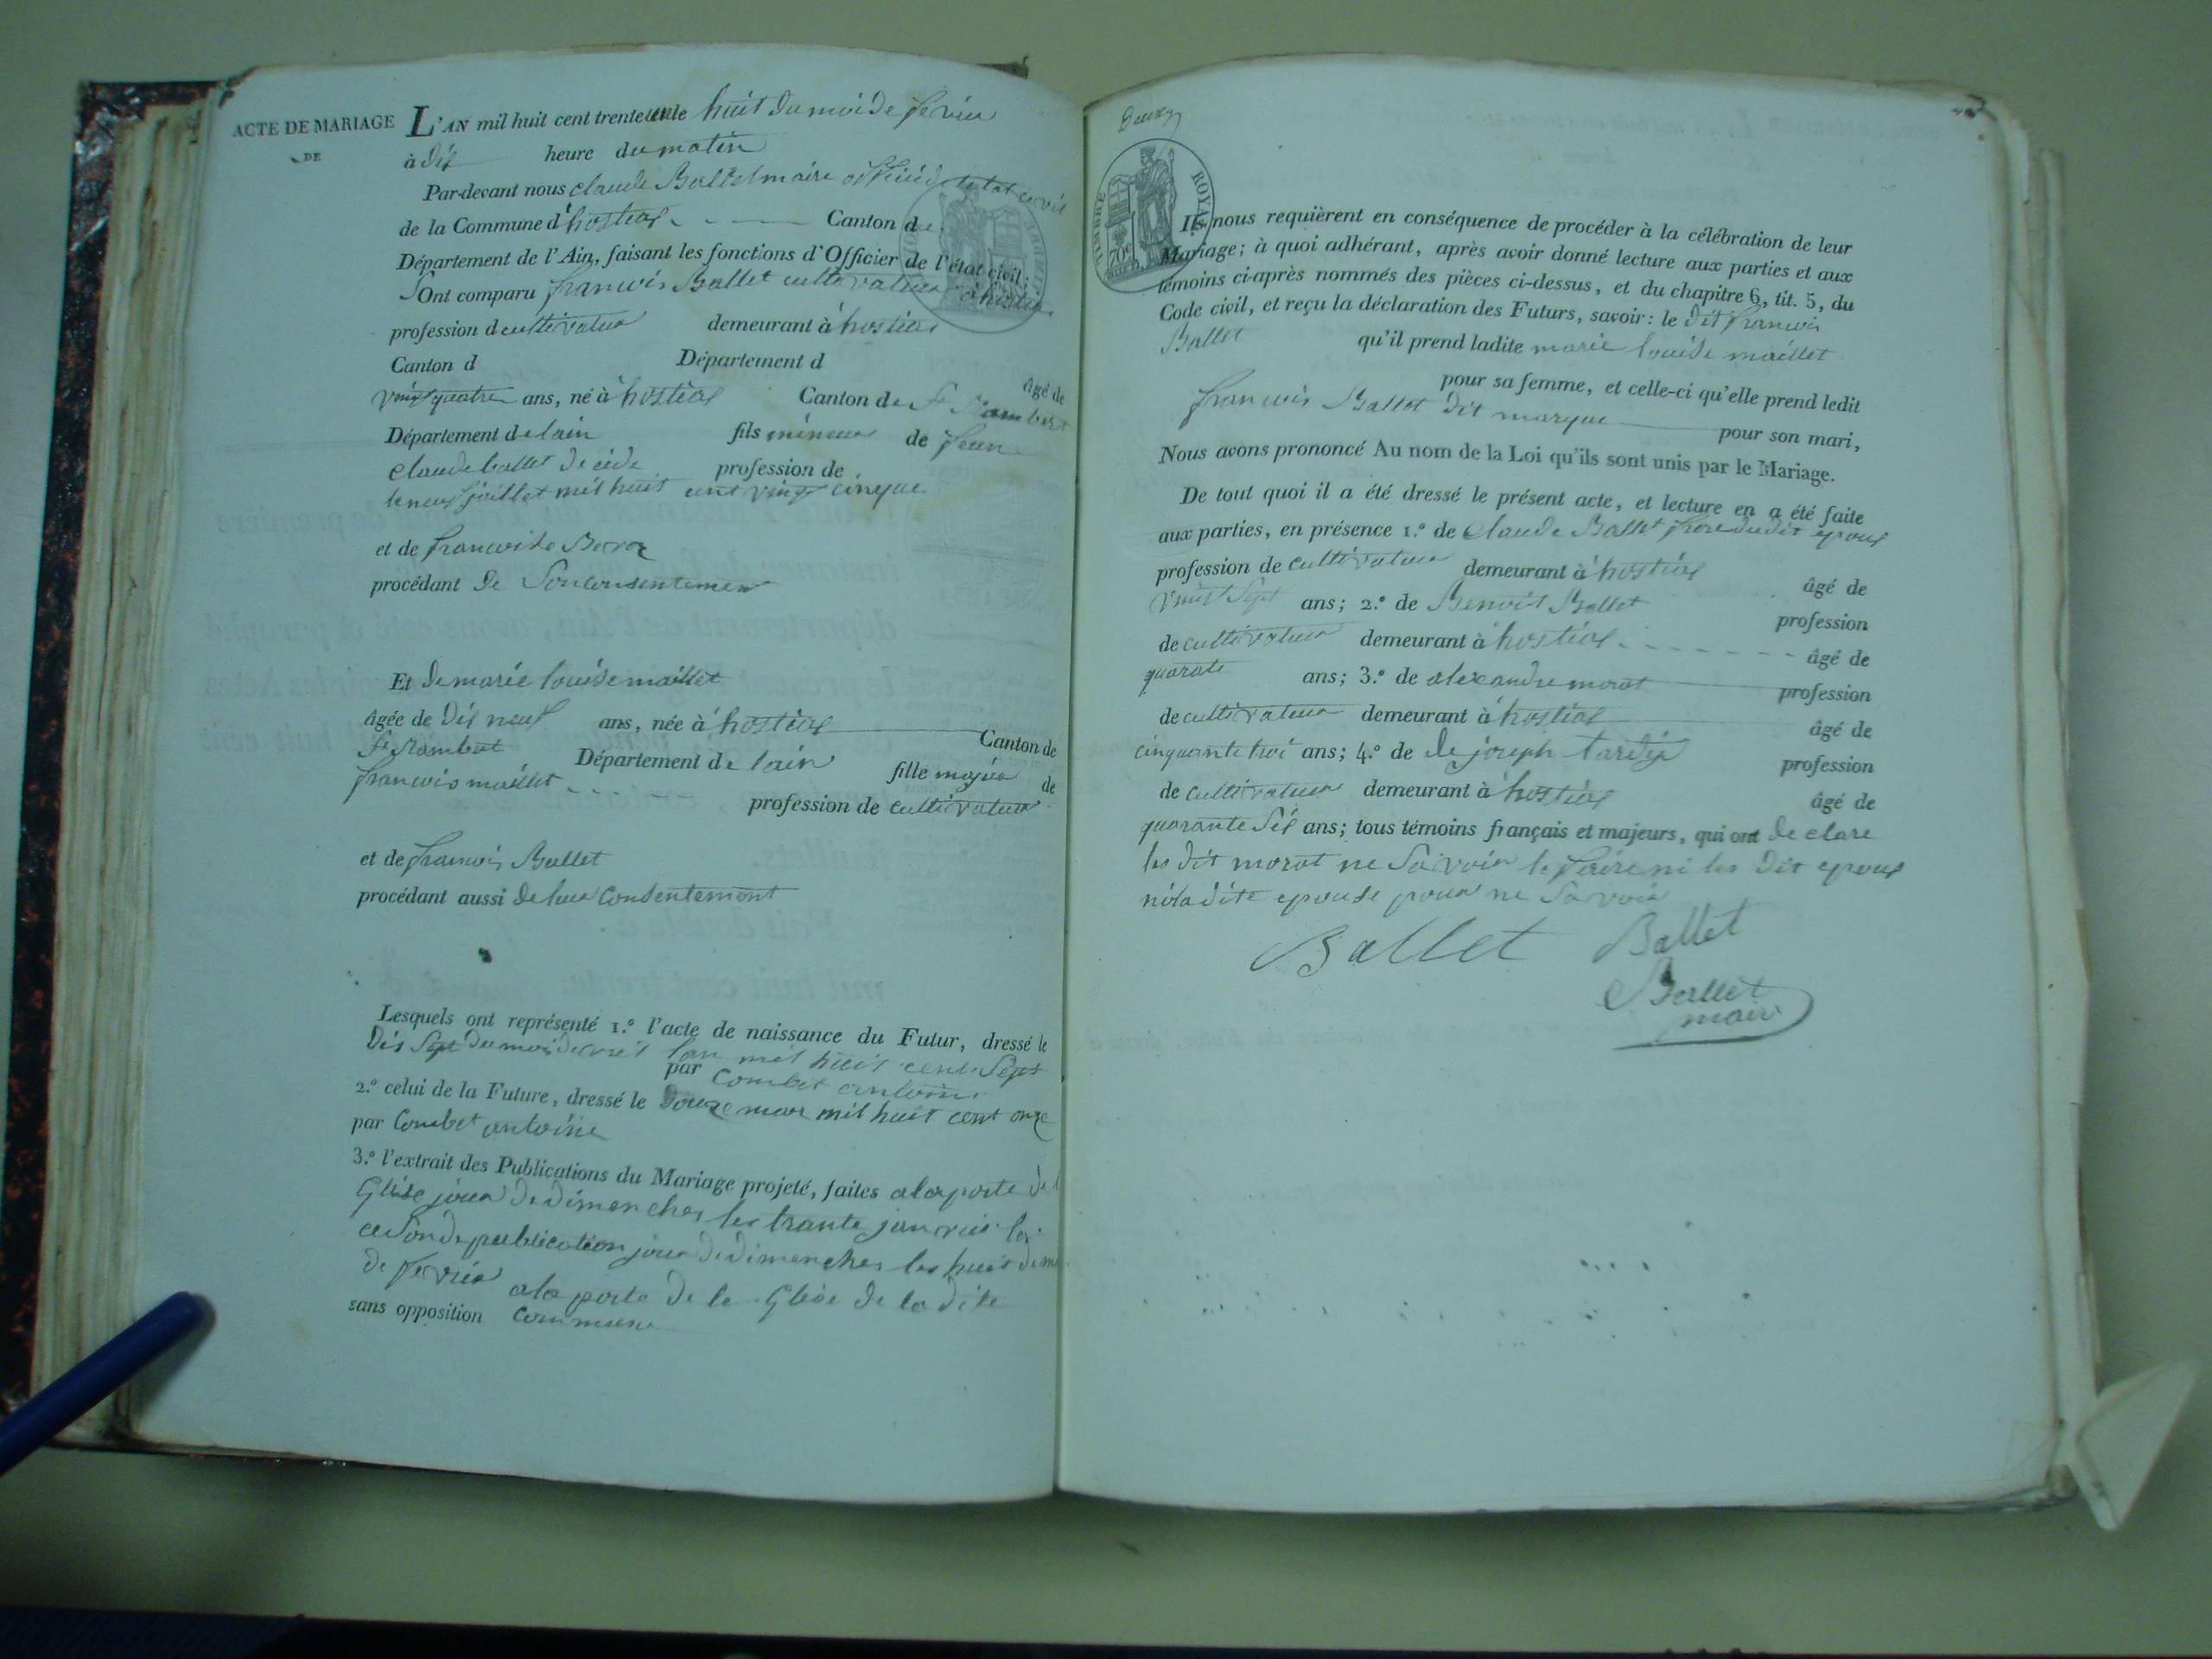 ACTE DE MARIAGE
DE
L'AN mil huit cent trente un le huit du moi de fevrier
à dix heure du matin
Par-devant nous claude Ballet maire officié de letat civil
de la Commune d'hostias Canton de
Département de l'Ain, faisant les fonctions d'Officier de l'état civil;
Ont comparu francois Ballet cultivateur a hostias
profession de cultivateur demeurant à hostias
Canton d Département d
âgé de
vingt quatre ans, né à hostias Canton de St Rambert
Département de lain fils mineur de jean
claude ballet décédé profession de
le neuf juillet mil huit cent vingt cinque
et de francoise
procédant de Son consentement
Et de marie louise maillet
âgée de dix neuf ans, née à hostias Canton de
St Rambert Département de lain fille majeu de
francois maillet profession de cultivateur
et de francois Ballet
procédant aussi de leur consentement
Lesquels ont représenté 1.º l'acte de naissance du Futur, dressé le
Dix Sept du moi davril lan mil huit cent Sept
par Combet antoine
2.º celui de la Future, dressé le Douze mars mil huit cent onze
par Combet antoine
3.º l'extrait des Publications du Mariage projeté, faites a la porte de l
Glise jour de dimenches les trante janvier la
publication jour de dimenches les huit
de fevrier a la porte de le Glise de la dite
sans opposition Commune
TIMBRE ROYAL
70c
Ils nous requièrent en conséquence de procéder à la célébration de leur
Mariage; à quoi adhérant, après avoir donné lecture aux parties et aux
témoins ci-après nommés des pièces ci-dessus, et du chapitre 6, tit. 5, du
Code civil, et reçu la déclaration des Futurs, savoir: le dit francois
Ballet qu'il prend ladite marie louise maillet
pour sa femme, et celle-ci qu'elle prend ledit
francois Ballet dit marque pour son mari,
Nous avons prononcé Au nom de la Loi qu'ils sont unis par le Mariage.
De tout quoi il a été dressé le présent acte, et lecture en a été faite
aux parties, en présence 1.º de Claude Ballet frere dudit epoux
profession de cultivateur demeurant à hostias âgé de
vingt Sept ans; 2.º de Benoit Ballet profession
de cultivateur demeurant à hostias âgé de
quarate ans; 3.º de alexandre morat profession
de cultivateur demeurant à hostias âgé de
cinquante troi ans; 4.º de de joseph tardy profession
de cultivateur demeurant à hostias âgé de
quarante Six ans; tous témoins français et majeurs, qui ont declare
les dit morat ne Savoir le faire ni les dit epoux
ni la dite epouse pour ne Savoir
Ballet Ballet
Ballet
maire